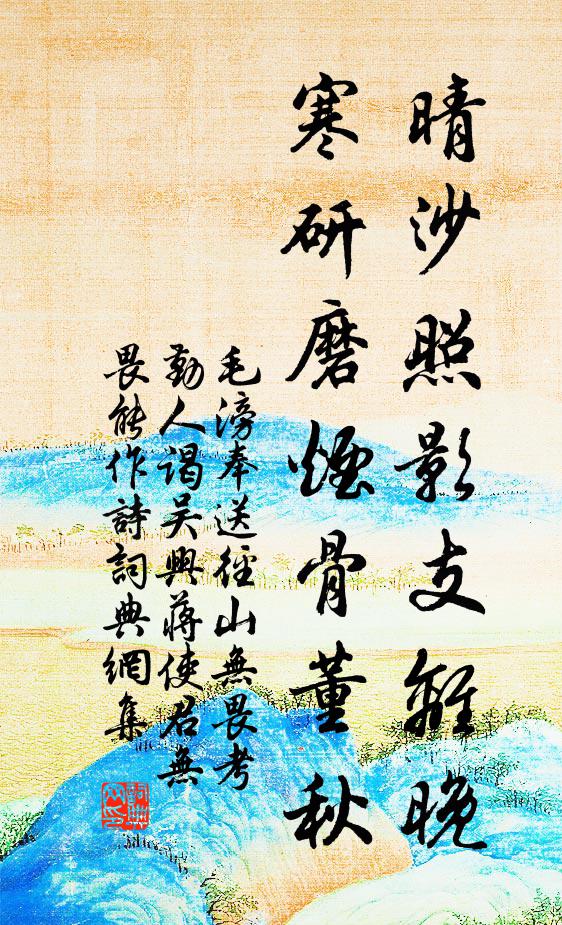 晴沙照影支離晚
寒研磨煙骨董秋
毛滂奉送徑山無畏考
勤人謁吳興蔣使君無
畏能作詩詞典網集